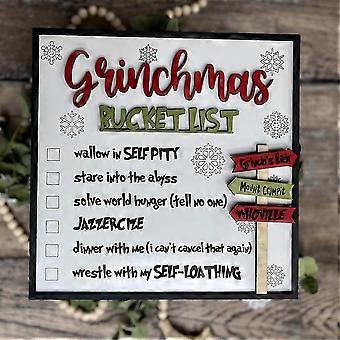 Grinchmas
BUCKET LIST
wallow in SELF PITY
stare into the abyss
solve world hunger (tell no one)
JAZZERCIZE
dinner with me (i can't cancel that again)
wrestle with my SELF-LOATHING
Grinch's Lair
Mount Crumpit
WHOVILLE